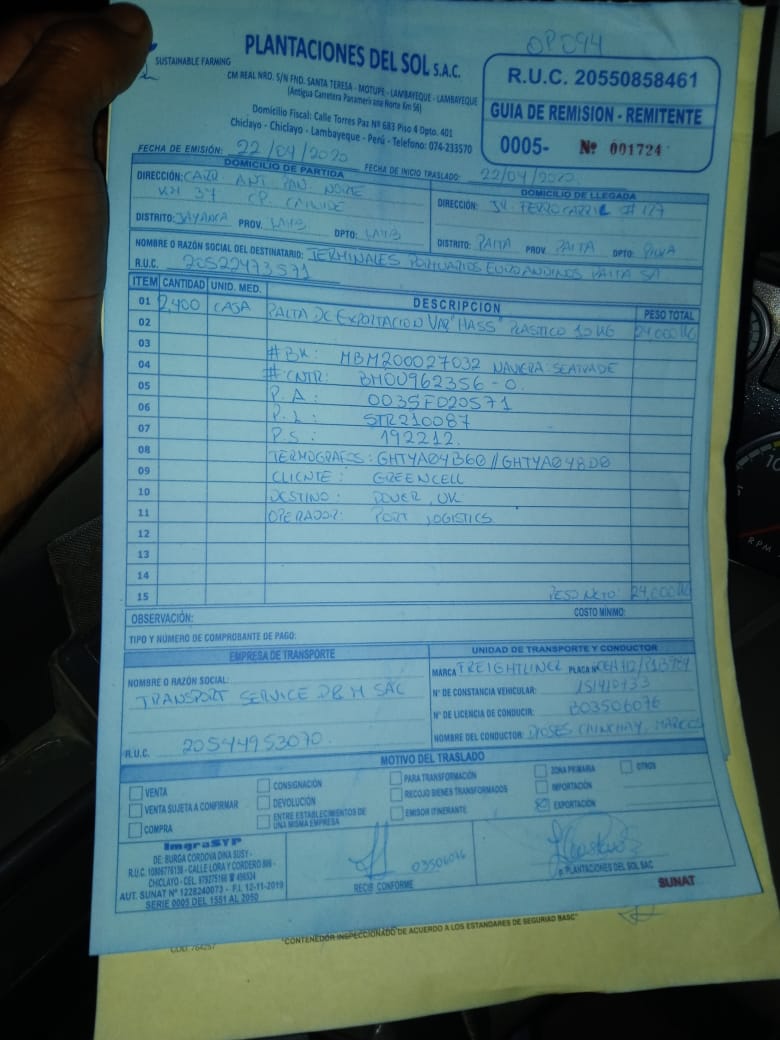 OP094
SUSTAINABLE FARMING
PLANTACIONES DEL SOL S.A.C.
CM REAL NRO. S/N FND. SANTA TERESA - MOTUPE - LAMBAYEQUE - LAMBAYEQUE
(Antigua Carretera Panamericana Norte Km 56)
Domicilio Fiscal: Calle Torres Paz Nº 683 Piso 4 Dpto. 401
Chiclayo - Chiclayo - Lambayeque - Perú - Telefono: 074-233570
R.U.C. 20550858461
GUIA DE REMISION - REMITENTE
0005- Nº 001724
FECHA DE EMISIÓN: 22/04/2020 FECHA DE INICIO TRASLADO: 22/04/2020
DOMICILIO DE PARTIDA
DIRECCIÓN: CARR ANT. PAN. NORTE
KM 37 CP
DISTRITO: JAYANCA PROV. LAMB. DPTO: LAMB
DOMICILIO DE LLEGADA
DIRECCIÓN: JR. FERROCARRIL # 127
DISTRITO: PAITA PROV. PAITA DPTO: PIURA
NOMBRE O RAZÓN SOCIAL DEL DESTINATARIO: TERMINALES PORTUARIOS EUROANDINOS PAITA SA
R.U.C. 20522473571
ITEM CANTIDAD UNID. MED. DESCRIPCION PESO TOTAL
01 2,400 CAJA PALTA DE EXPORTACION VAR "HASS" PLASTICO 10 KG 24,000 KG
02
03
04 #BK: MBM200027032 NAVIERA: SEATRADE
05 #CNTR: BMOU962356-0.
06 P.A: 0035F020571
07 P.L: STR210087
08 P.S: 192212.
09 TERMOGRAFOS: GHTYA04B60 // GHTYA048D0
10 CLIENTE: GREENCELL
11 DESTINO: DOVER, UK
12 OPERADOR: PORT LOGISTICS
13
14
15 PESO NETO: 24,000 KG
OBSERVACIÓN: COSTO MÍNIMO:
TIPO Y NÚMERO DE COMPROBANTE DE PAGO:
EMPRESA DE TRANSPORTE
NOMBRE O RAZÓN SOCIAL:
TRANSPORT SERVICE D B M SAC
R.U.C. 20544953070.
UNIDAD DE TRANSPORTE Y CONDUCTOR
MARCA FREIGHTLINER PLACA Nº
Nº DE CONSTANCIA VEHICULAR:
Nº DE LICENCIA DE CONDUCIR: B03506076
NOMBRE DEL CONDUCTOR: DIOSES CHINCHAY, MARCOS
MOTIVO DEL TRASLADO
VENTA
VENTA SUJETA A CONFIRMAR
COMPRA
CONSIGNACIÓN
DEVOLUCIÓN
ENTRE ESTABLECIMIENTOS DE
UNA MISMA EMPRESA
PARA TRANSFORMACIÓN
RECOJO BIENES TRANSFORMADOS
EMISOR ITINERANTE
ZONA PRIMARIA
IMPORTACIÓN
EXPORTACIÓN
OTROS
ImgraSYP
DE: BURGA CORDOVA DINA SUSY -
R.U.C. 10806776138 - CALLE LORA Y CORDERO 898 -
CHICLAYO - CEL. 979275166
AUT. SUNAT Nº 1228240073 - F.I. 12-11-2019
SERIE 0005 DEL 1551 AL 2050
03506076
RECIBI CONFORME
p. PLANTACIONES DEL SOL SAC
SUNAT
COD. 764257
"CONTENEDOR INSPECCIONADO DE ACUERDO A LOS ESTANDARES DE SEGURIAD BASC"
RPM